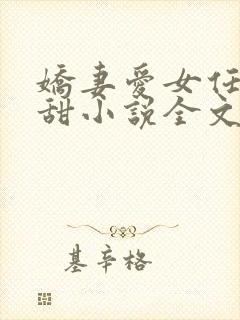 嬌妻愛女任
甜小說全文
基辛格